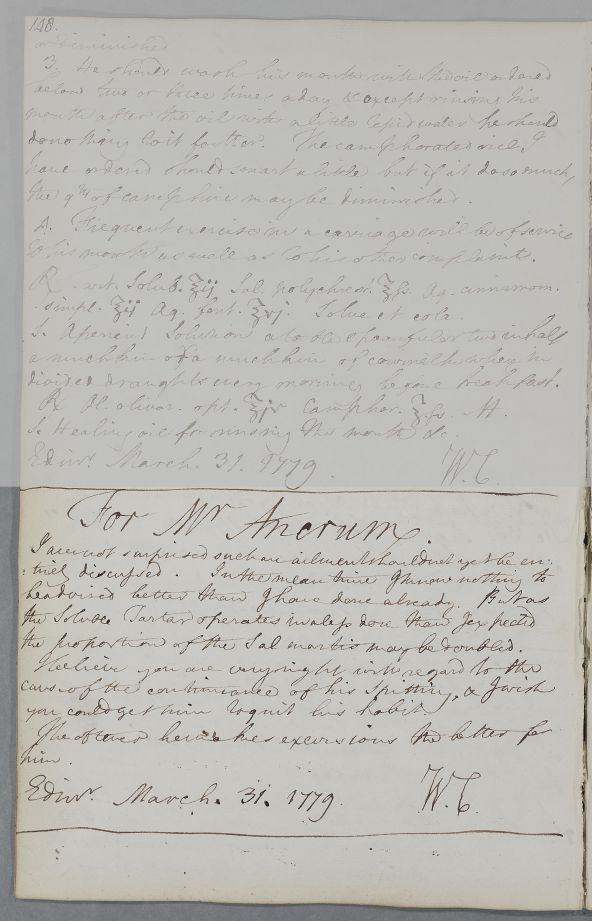 148.
or diminished
3. He should wash his mouth with the oil ordered
below two or three times a day & except rinsing his
mouth after the oil with a little tepid water he should
do nothing to it farther. The camphorated oil I
have ordered should smart a little but if it do so much,
the qty of camphire may be diminished.
4. Frequent exercise in a carriage will be of service
to his mouth as well as to his other complaints.
℞ Tart. Solub. ℥ij Sal. polychrest. ℥fs. Aq. cinnamom.
simpl. ℥ij Aq. font. ℥vj. Solve et cola.
S. Aperient Solution a table spoonful or two in half
a mutchkin of a mutchkin of cowmilk whey in
divided draughts every morning before breakfast.
℞ Ol. olivar. opt. ℥iv Camphor. ʒfs. M.
S. Healing oil for rinsing the mouth &c.
Edinr. March. 31. 1779. W.C.
For Mr Ancrum.
I am not surprised such an ailment should not yet be en:
:tirely discussed. In the mean time I know nothing to
be advised better than I have done already. But as
the Soluble Tartar operates in a less dose than I expected
the proportion of the Sal martis may be doubled.
I believe you are very right with regard to the
cause of the continuance of his Spitting, & I wish
you could get him to quit his habit.
The oftener he makes excursions the better for
him.
Edinr. March. 31. 1779. W.C.